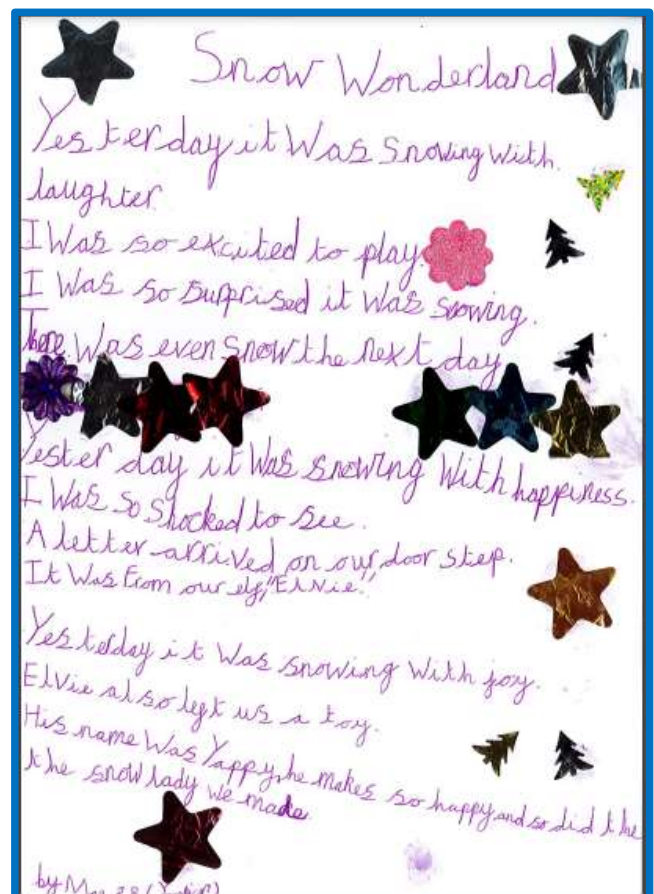 Snow Wonderland
Yesterday it Was Snowing With
laughter
I Was so excited to play
I Was so surprised it Was snowing.
There Was even snow the next day
Yesterday it Was snowing With happiness.
I Was so Shocked to see.
A letter arrived on our door step.
It Was From our elf, "Elvie."
Yesterday it Was snowing With joy.
Elvie also left us a toy.
His name Was Yappy, he makes so happy and so did the
the snow lady we made.
by